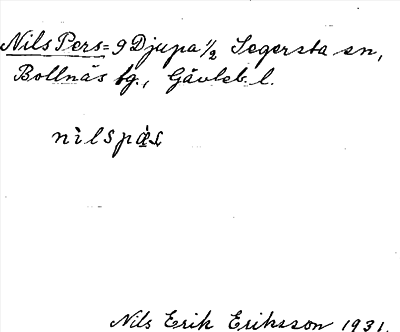 Nils Pers = 9 Djupa 1/2 Segersta sn,
Bollnäs tg., Gävleb. l.
nìlspæ̀s
Nils Erik Eriksson 1931.